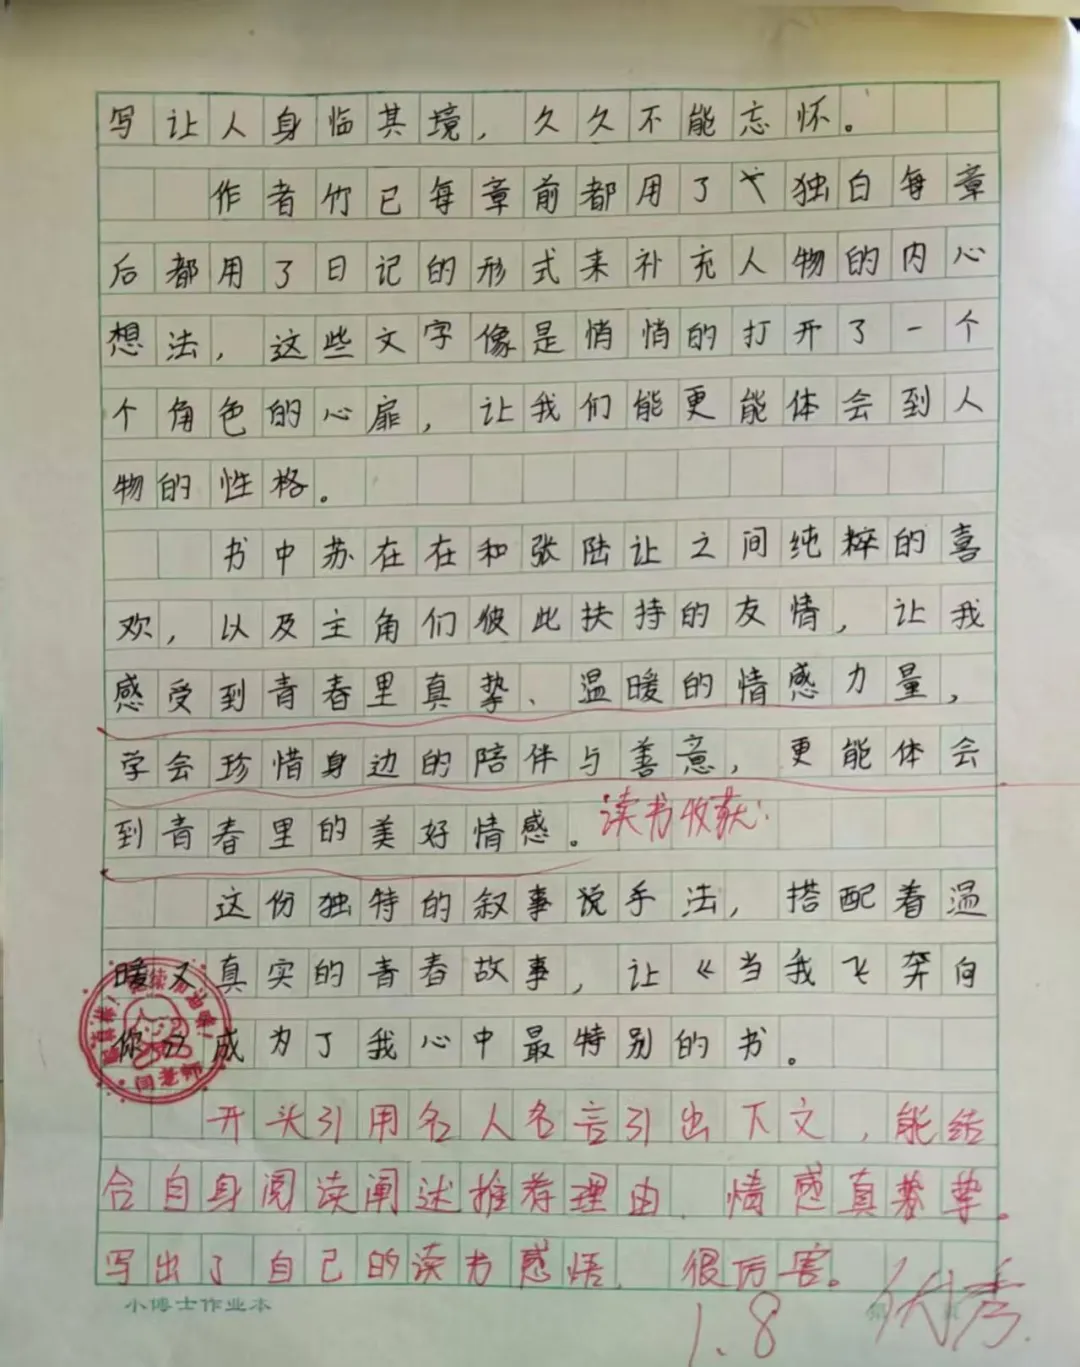 写让人身临其境，久久不能忘怀。
作者竹已每章前都用了独白每章
后都用了日记的形式来补充人物的内心
想法，这些文字像是悄悄的打开了一个
个角色的心扉，让我们能更能体会到人
物的性格。
书中苏在在和张陆让之间纯粹的喜
欢，以及主角们彼此扶持的友情，让我
感受到青春里真挚、温暖的情感力量，
学会珍惜身边的陪伴与善意，更能体会
到青春里的美好情感。
读书收获：
这份独特的叙事说手法，搭配着温
暖又真实的青春故事，让《当我飞奔向
你》成为了我心中最特别的书。
闫老师
开头引用名人名言引出下文，能结
合自身阅读阐述推荐理由，情感真挚。
写出了自己的读书感悟，很厉害。
小博士作业本
1.8
优秀.